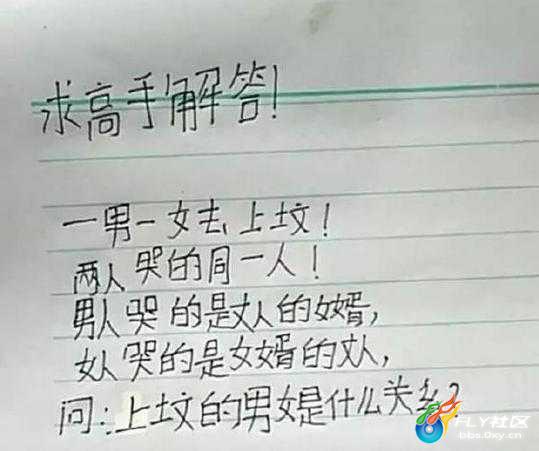 求高手解答!
一男一女去上坟!
两人哭的同一人!
男人哭的是丈人的女婿,
女人哭的是女婿的丈人,
问:上坟的男女是什么关系?
FLY社区
bbs.0xy.cn